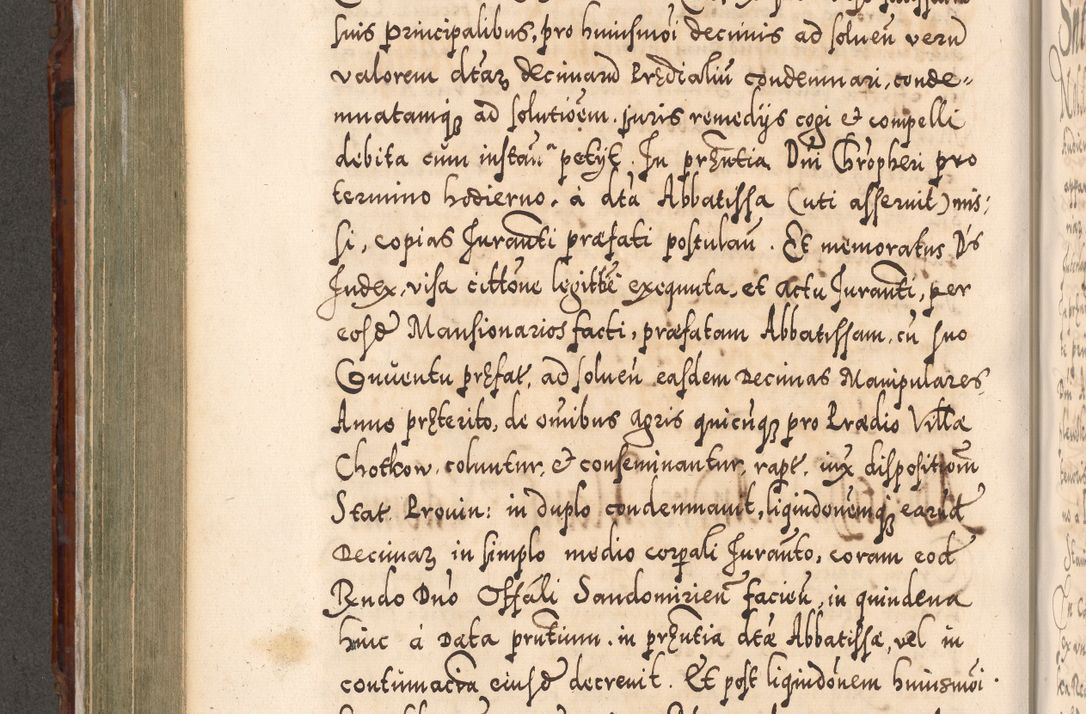 suis principalibus, pro huiusmoi decimis ad solueñ verũ
valorem dtaꝝ decimarũ Prædialiũ condemnari, conde-
mnatamq̃ ad solutioẽm. juris remedijs cogi et compelli
debita cũm instañ petijt. In præntia Dñi Chrôpheri pro
termino hodierno, à dtã Abbatissa (uti asseruit) mis:
si, copias Jurañti præfati postulañ. Et memoratus Dñs
Judex, visa cittõne legittẽ exequuta, et actu Jurañti, per
eosdẽ Mansionarios facti, præfatam Abbatissam, cũ suo
Conuentu præfat. ad solueñ easdem Decimas Manipulares
Anno præterito, de omibus agris quicũq̃ pro Prædio Villæ
Chotkow, coluntur, et conseminantur, rapt. iux dispositioñm
Stat. Prouin: in duplo condemnauit, liquidõnemq̃ earũdẽ
Decimaꝝ in simplo medio corpali Jurañto, coram eodẽ
Rẽndo Dño Offãli Sandomirieñ facieñ, in quindena
hinc à Data pr̃ntium. in præntia dtæ Abbatissæ, vel in
contũmaciã eiusdẽ decreuit. Et post liquidõnem huiusmoi